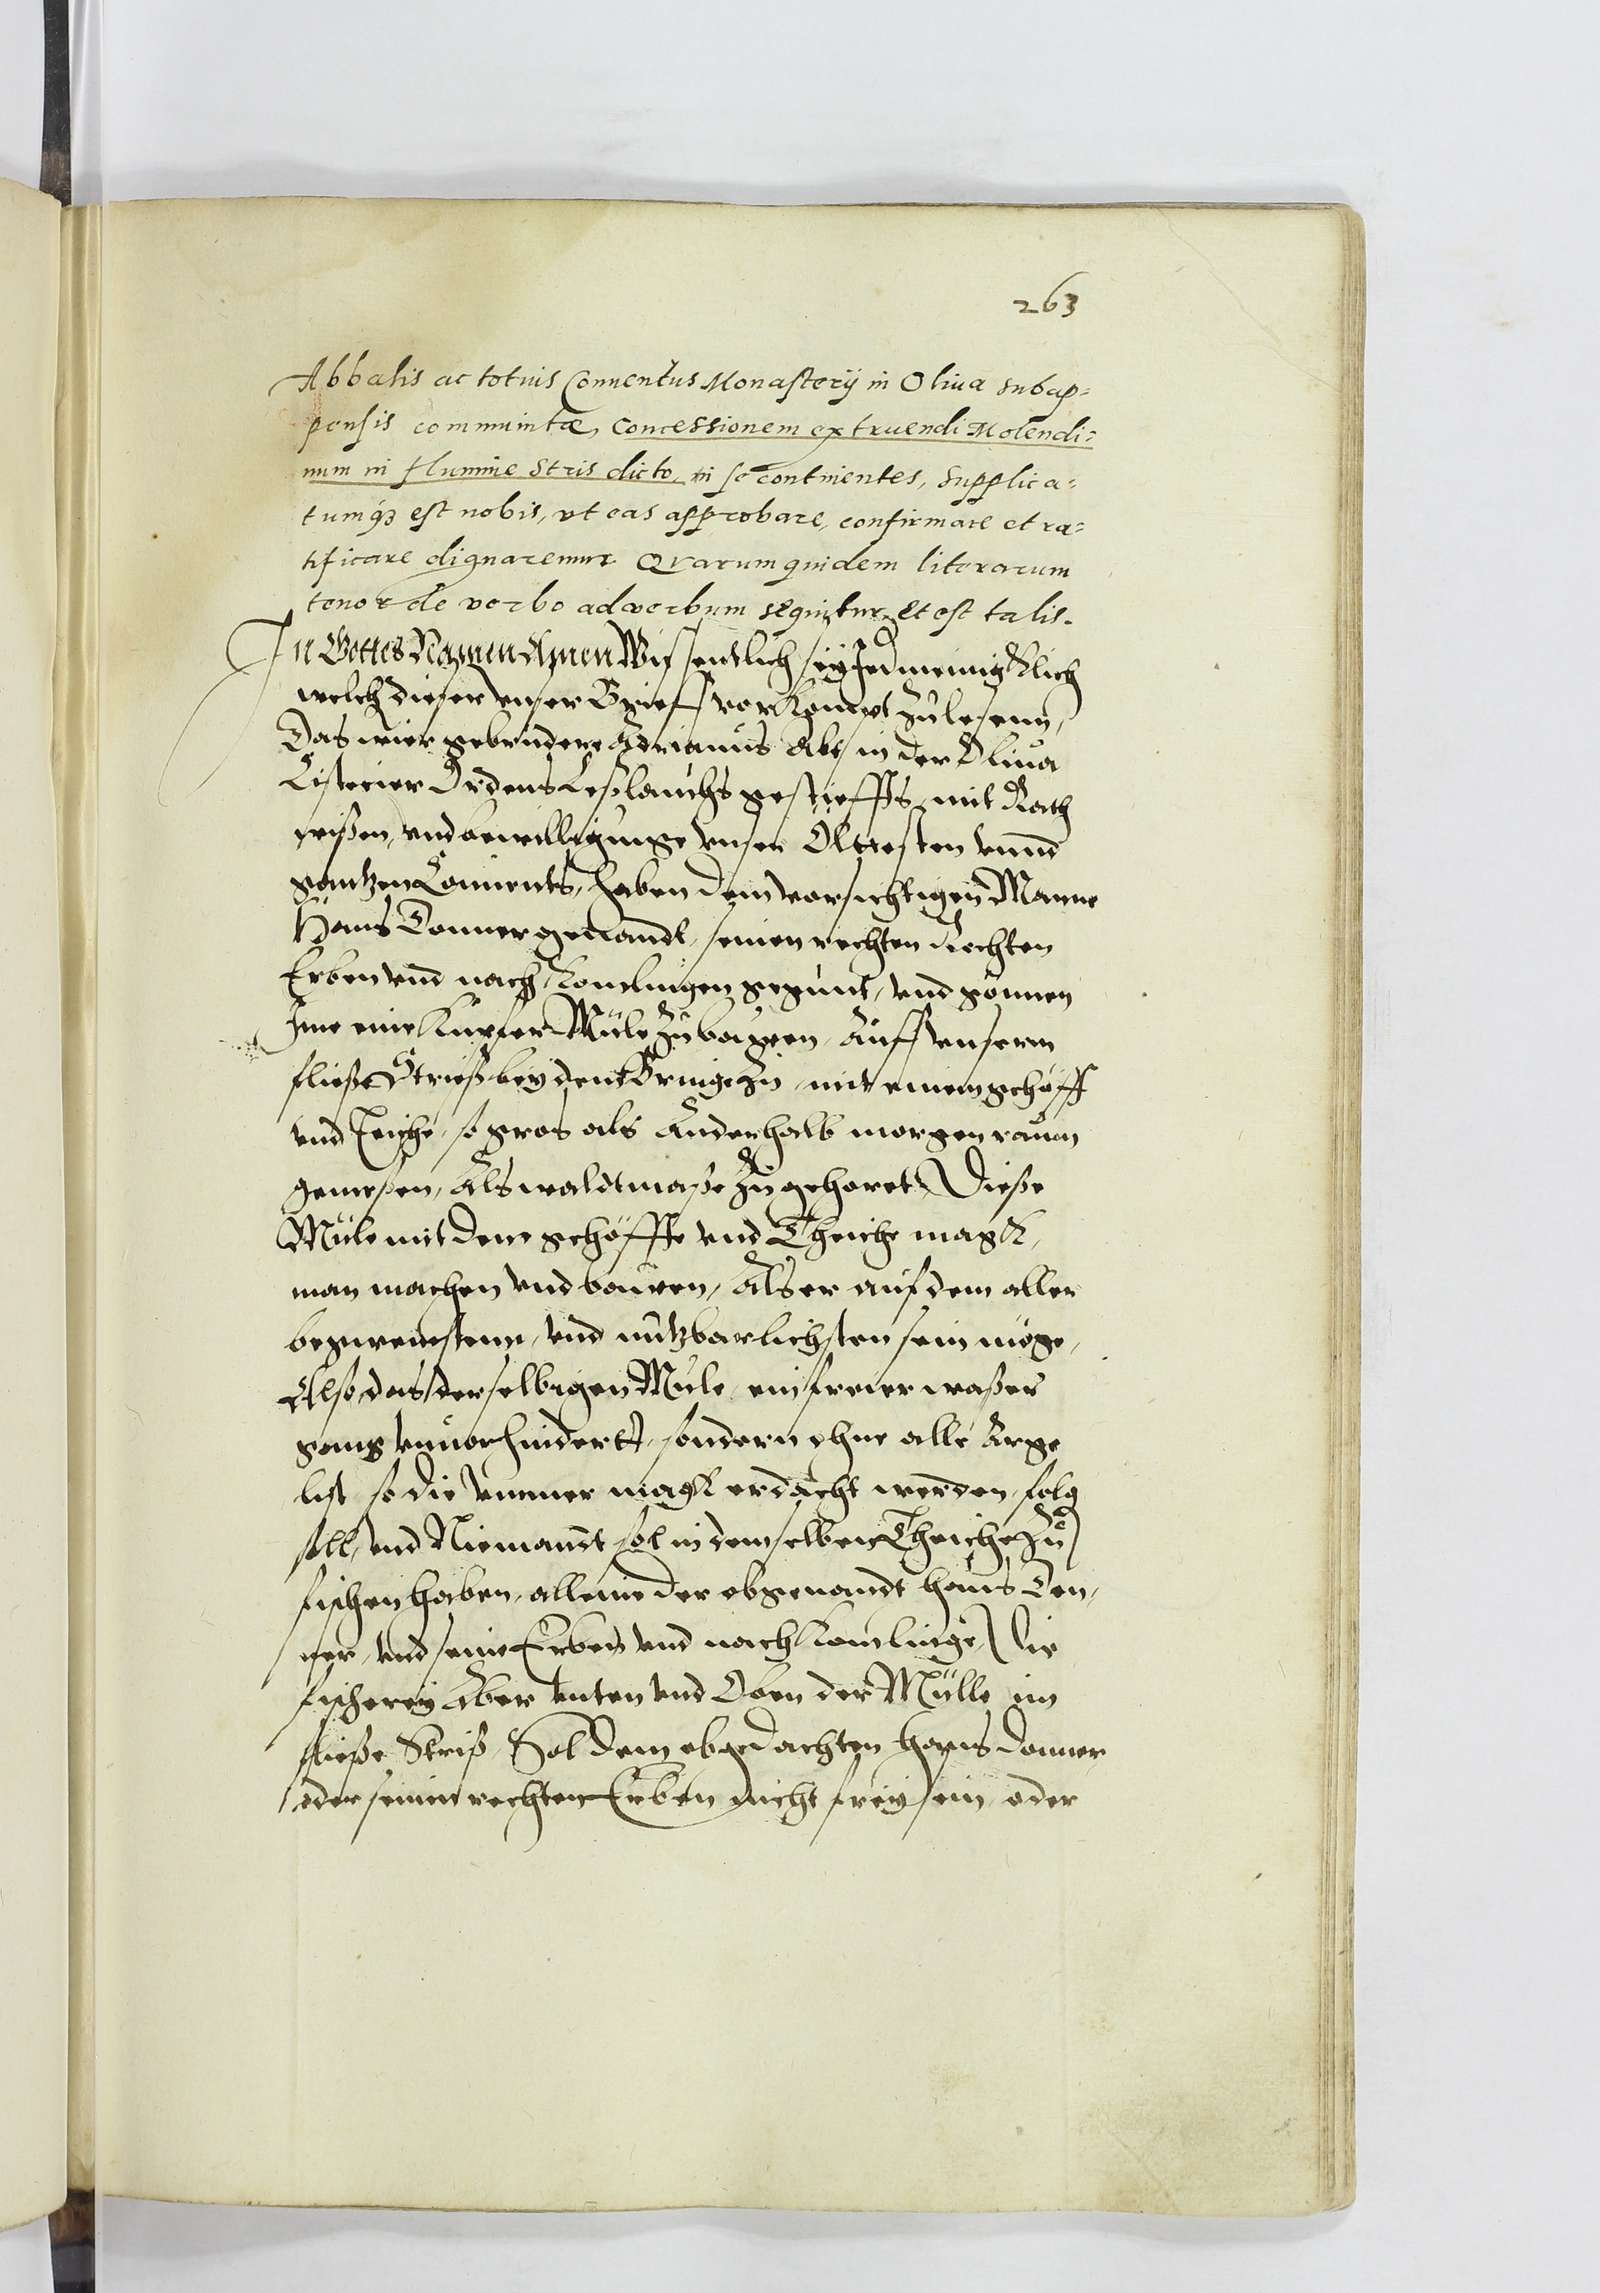 263
Abbatis ac totius Conuentus Monasterij in Oliua subap=
pensis communitæ, Concessionem extruendi Molendi=
num in flumine Stris dicto, in se continentes, supplica=
tumq3 est nobis, vt eas approbare, confirmare et ra=
tificare dignaremur Quarum quidem literarum
tenor de verbo ad verbum sequitur, Et est talis.
In Gottes Namen Amen Wissentlich seÿ Jedmeinigklich
welch dieser vnser Brieff vorkompt zu lesenn,
Das wier gebrudere Adrianus Abt in der Oliua
Cistecier Ordens Leslauchs gestieffts, mit Rath
wißen, vnd bewilligunge vnser Oltesten vnnd
gantzen Conuents, haben dem vorsichtigen Manne
Hans Donner genandt, seinen rechten Rechten
Erben vnd nach komlingen gegunt, vnd gönnen
Jme eine Kupfer Müle zu bawen, auff vnserm
fließe Strieß beÿ dem Bringe zu, mit einem gehöff
vnd Teiche, so gros als Anderhalb morgen raum
gemeßen, Als waldtmaße zu gehoret, Dieße
Müle mit dem gehöffte vnd Theiche magk,
man machen vnd bauwen, Als er auf dem aller
bequemesten, vnd nutzbarlichsten sein möge,
Also das derselbigen Mule, ein freier waßer
gang vnuorhindert, sondern ohne alle Arge
list so die vmmer magk erdacht werden, folg
soll, vnd Niemandt sol in dem selben Theiche zu
fischen haben, alleine der obgenandt Hans Don,
ner, vnd seine Erben vnd nach komlinge, Die
fischereÿ Aber vnten vnd Oben der Mülle im
fließe Striß, Sol dem obgedachten Hans Donner
oder seinen rechten Erben nicht freÿ sein, oder